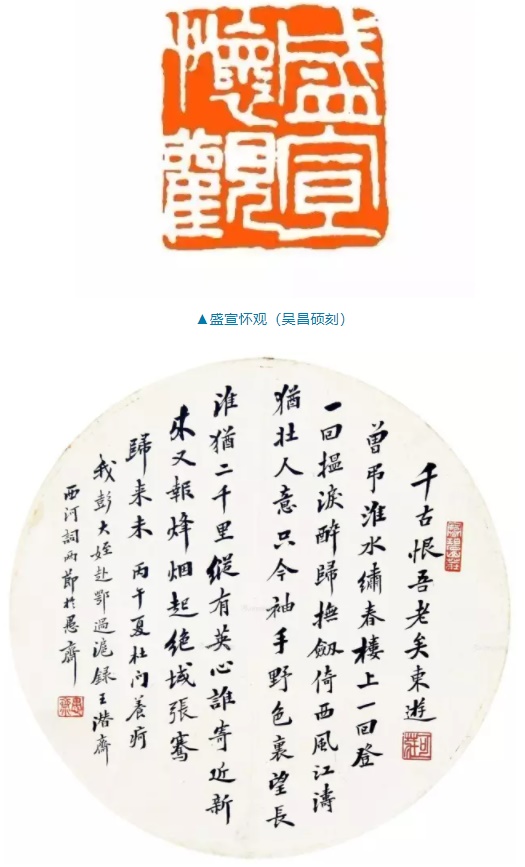 盛宣
懷觀
▲盛宣怀观（吴昌硕刻）
千古恨吾老矣東遊
曾弔淮水繡春樓上一回登
一回揾淚醉歸撫劍倚西風江濤
猶壯人意只今袖手野色裏望長
淮猶二千里縱有英心誰寄近新
來又報烽烟起絶域張騫
歸來未 丙午夏杜门養疴
我彭大姪赴鄂過滬錄王潛齋
西河詞兩節於愚齋